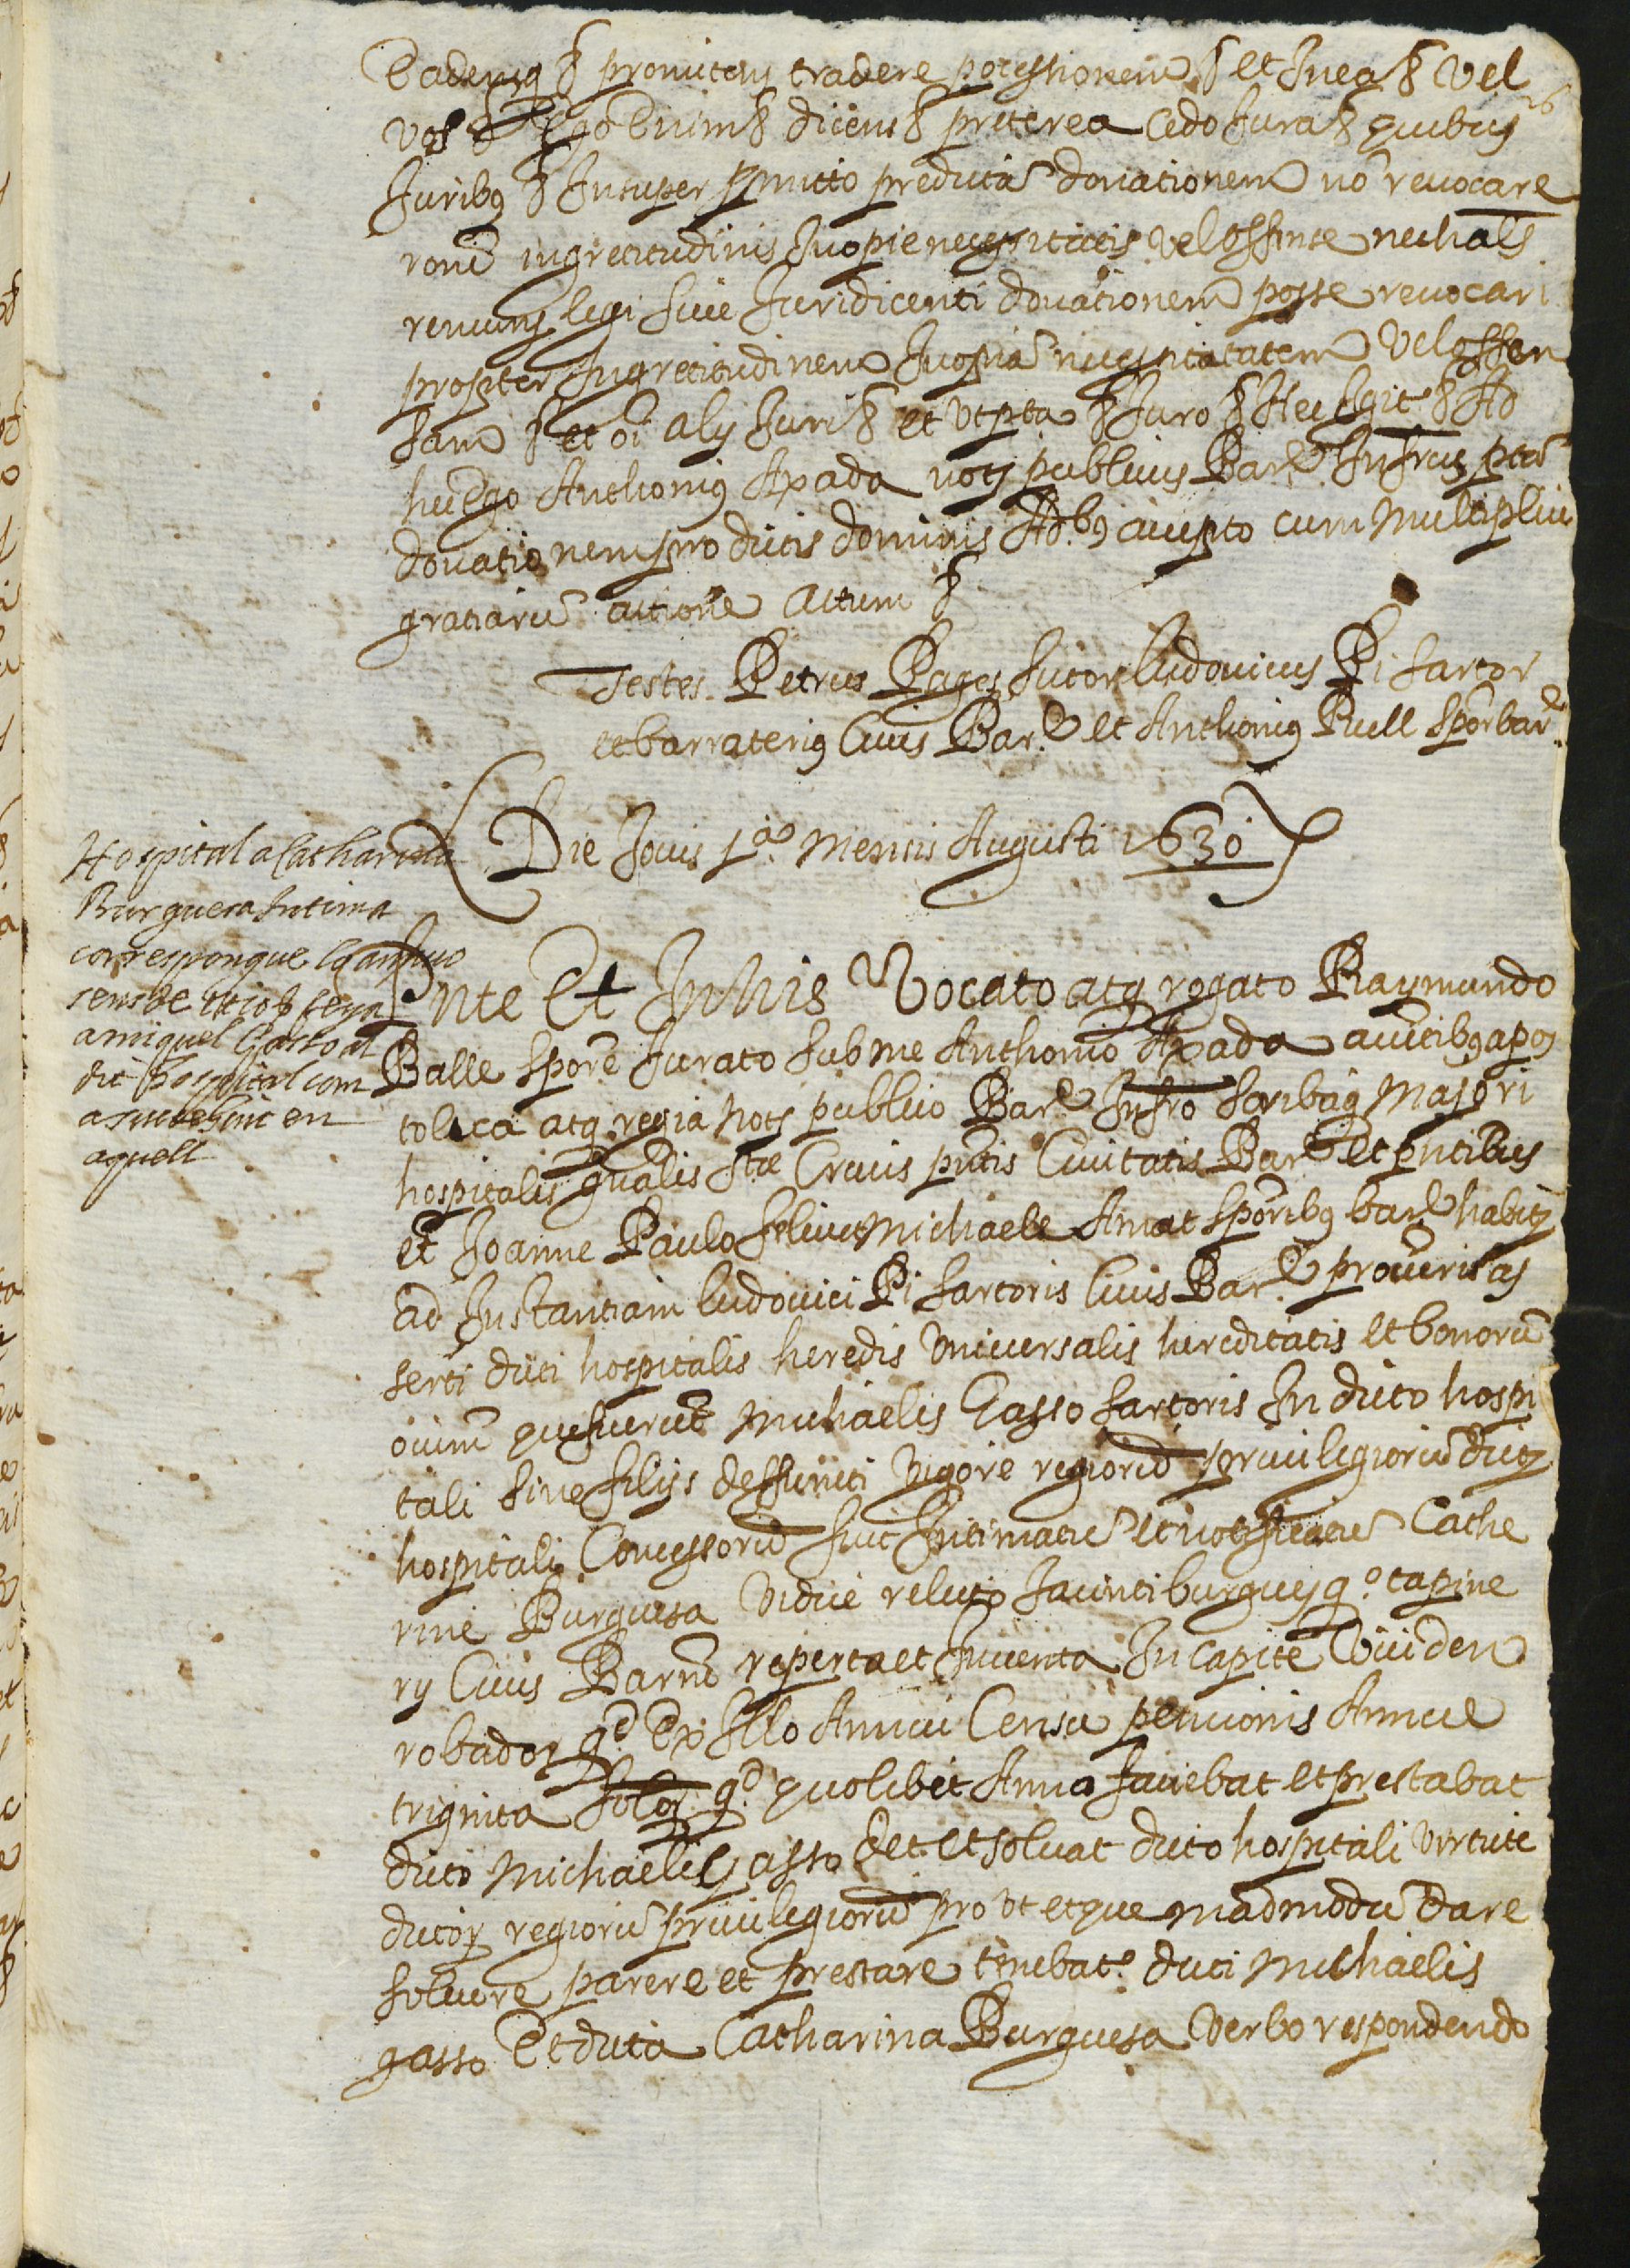 Eademq & promictens tradere pocessionem & et Inea & Vel
vos & Ego Enim & dicens & preterea Cedo Jura & quibus
Juribꝯ & Insuper promitto predictā donationem nō revocare
rone ingratitudinis Inopie necessitatis vel offense nec hals
renuns legi sive Juri dicenti donationem posse revocari
propter Ingratitudinem Inopiā necessitatem Vel offen
sam & et oī alij Juri & et Ut pta & Juro & Hec Igit & Ad
hec Ego Anthonius Axada nots publicus Barᵉ Infrus ptā
donationem pro dictis dominis Adᵇꝯ accepto cum multiplici
gratiarū actione Actum &
Testes Petrus Pages sutor Ludovicus Pi sartor
et barraterius Civis Barᵉ et Anthonius Ruell sporbarᵉ
Die Jovis 1ᵃ mensis Augusti 1630
Hospital a Catharina
Burguera Intima
correspongue lo annuo
sens de feya
a miquel Gasso al
dit hospital com
a succehint en
aquell
Pnte Et Inhis Vocato atq rogato Raymundo
Balle spore Jurato sub me Anthonio Axada auctibꝯ apos
tolica atq regia nots publico Barᵉ Infro scribaq Majori
hospitalis gnalis Stæ Crucis pntis Civitatis Barᵉ et pntibus
et Joanne Paulo Feliu et Michaele Amat sporibꝯ barᵉ habits
ad Instantiam ludovici Pi sartoris Civis Barᵉ procuris as
serti dicti hospitalis heredis Universalis hereditatis et bonorū
oīum que fuerūt Michaelis Gasso sartoris In dicto hospi
tali sine filijs deffuncti Vigore regiorū privilegiorū dicto
hospitali Concessorū fuit Intimatū et notificatū Cathe
rine Burguesa Vidue relicte Jacinti burgues qᵒ tapine
rij Civis Barne reperta et Inventa In capite Vici den
robador qᵈ Ex Illo Annui Censu pencionis Annue
triginta solos qᵈ quolibet Anno faciebat et prestabat
dicto Michaeli Gasso det et solvat dicto hospitali virtute
dictor regiorū privilegiorū pro ut et que madmodū dare
solvere parere et prestare tenebatᵉ dicti Michaelis
gasso Et dicta Catharina Burguesa Verbo respondendo